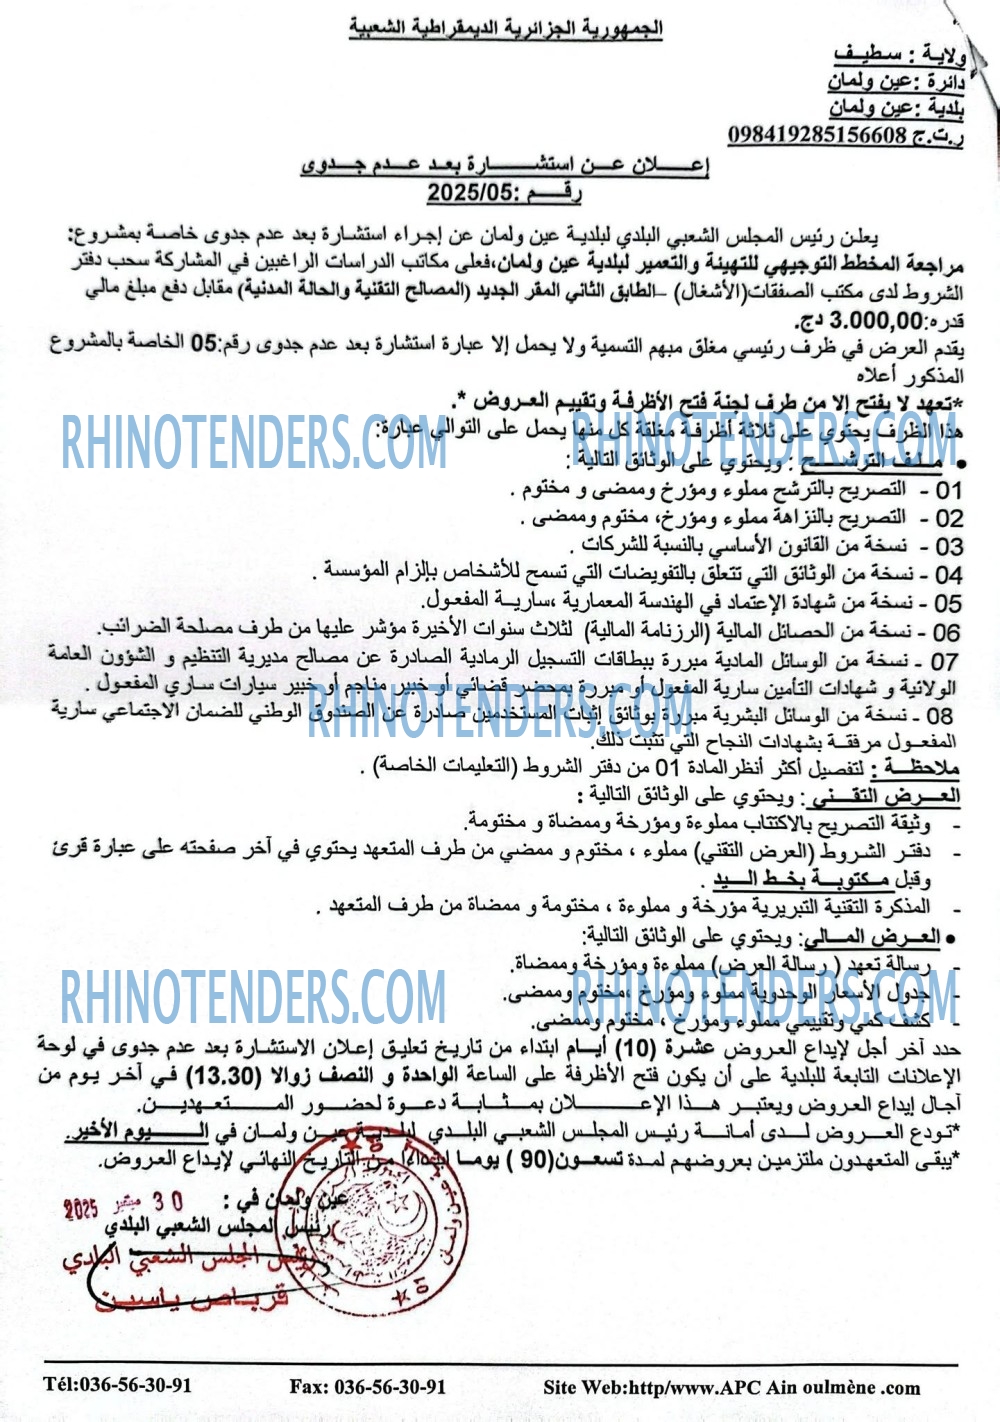 الجمهورية الجزائرية الديمقراطية الشعبية
ولاية : سطيف
دائرة :عين ولمان
بلدية :عين ولمان
ر.ت.ج 098419285156608
إعلان عن استشارة بعد عدم جدوى
رقم :2025/05
يعلن رئيس المجلس الشعبي البلدي لبلدية عين ولمان عن إجراء استشارة بعد عدم جدوى خاصة بمشروع:
مراجعة المخطط التوجيهي للتهيئة والتعمير لبلدية عين ولمان،فعلى مكاتب الدراسات الراغبين في المشاركة سحب دفتر
الشروط لدى مكتب الصفقات(الأشغال) –الطابق الثاني المقر الجديد (المصالح التقنية والحالة المدنية) مقابل دفع مبلغ مالي
قدره:3.000,00 دج.
يقدم العرض في ظرف رئيسي مغلق مبهم التسمية ولا يحمل إلا عبارة استشارة بعد عدم جدوى رقم:05 الخاصة بالمشروع
المذكور أعلاه
*تعهد لا يفتح إلا من طرف لجنة فتح الأظرفة وتقييم العروض *.
هذا الظرف يحتوي على ثلاثة أظرفة مغلقة كل منها يحمل على التوالي عبارة:
• ملف الترشح : ويحتوي على الوثائق التالية :
01 - التصريح بالترشح مملوء ومؤرخ وممضى و مختوم .
02 - التصريح بالنزاهة مملوء ومؤرخ، مختوم وممضى .
03 - نسخة من القانون الأساسي بالنسبة للشركات .
04 - نسخة من الوثائق التي تتعلق بالتفويضات التي تسمح للأشخاص بإلزام المؤسسة .
05 - نسخة من شهادة الإعتماد في الهندسة المعمارية ،سارية المفعول.
06 - نسخة من الحصائل المالية (الرزنامة المالية) لثلاث سنوات الأخيرة مؤشر عليها من طرف مصلحة الضرائب.
07 - نسخة من الوسائل المادية مبررة ببطاقات التسجيل الرمادية الصادرة عن مصالح مديرية التنظيم و الشؤون العامة
الولائية و شهادات التأمين سارية المفعول أو مبررة بمحضر قضائي أو خبير مناجم أو خبير سيارات ساري المفعول .
08 - نسخة من الوسائل البشرية مبررة بوثائق إثبات المستخدمين صادرة عن الصندوق الوطني للضمان الاجتماعي سارية
المفعول مرفقة بشهادات النجاح التي تثبت ذلك.
ملاحظة : لتفصيل أكثر أنظرالمادة 01 من دفتر الشروط (التعليمات الخاصة) .
العرض التقني : ويحتوي على الوثائق التالية :
- وثيقة التصريح بالاكتتاب مملوءة ومؤرخة وممضاة و مختومة.
- دفتر الشروط (العرض التقني) مملوء ، مختوم و ممضي من طرف المتعهد يحتوي في آخر صفحته على عبارة قرئ
وقبل مكتوبة بخط اليد .
- المذكرة التقنية التبريرية مؤرخة و مملوءة ، مختومة و ممضاة من طرف المتعهد .
• العرض المالي: ويحتوي على الوثائق التالية:
- رسالة تعهد ( رسالة العرض) مملوءة ومؤرخة وممضاة.
- جدول الأسعار الوحدوية مملوء ومؤرخ ،مختوم وممضى.
- كشف كمي وتقييمي مملوء ومؤرخ ، مختوم وممضى.
حدد آخر أجل لإيداع العروض عشرة (10) أيام ابتداء من تاريخ تعليق إعلان الاستشارة بعد عدم جدوى في لوحة
الإعلانات التابعة للبلدية على أن يكون فتح الأظرفة على الساعة الواحدة و النصف زوالا (13.30) في آخر يوم من
آجال إيداع العروض ويعتبر هذا الإعلان بمثابة دعوة لحضور المتعهدين.
*تودع العروض لدى أمانة رئيس المجلس الشعبي البلدي لبلدية عين ولمان في اليوم الأخير.
*يبقى المتعهدون ملتزمين بعروضهم لمدة تسعون(90 ) يوما إبتداءا من التاريخ النهائي لإيداع العروض.
عين ولمان في : 30 سبتمبر 2025
رئيس المجلس الشعبي البلدي
رئيس المجلس الشعبي البلدي
قرباص ياسين
Tél:036-56-30-91 Fax: 036-56-30-91 Site Web:http/www.APC Ain oulmène .com
RHINOTENDERS.COM
RHINOTENDERS.COM
RHINOTENDERS.COM
RHINOTENDERS.COM
RHINOTENDERS.COM